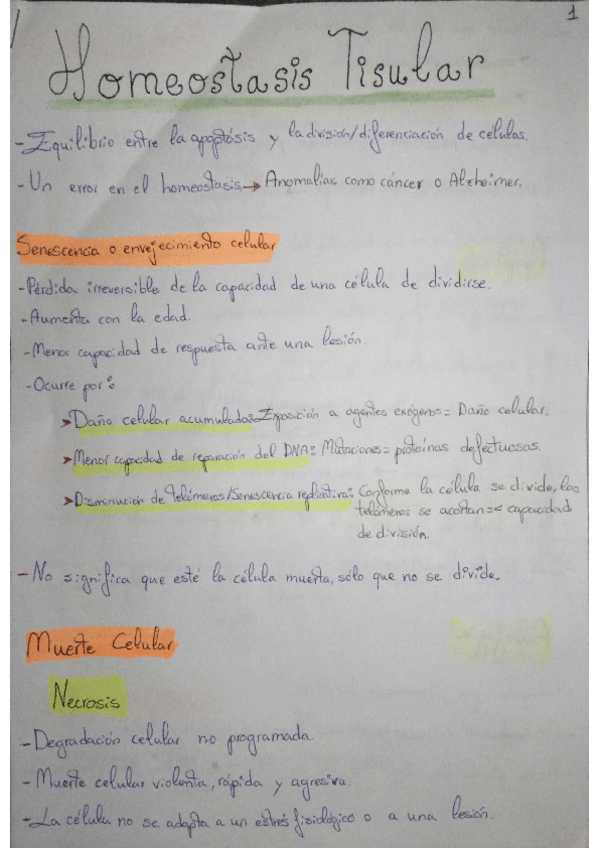 1
Homeostasis Tisular
- Equilibrio entre la apoptósis y la división/diferenciación de células.
- Un error en el homeostasis → Anomalías como cáncer o Alzheimer.
Senescencia o envejecimiento celular
- Pérdida irreversible de la capacidad de una célula de dividirse.
- Aumenta con la edad.
- Menor capacidad de respuesta ante una lesión.
- Ocurre por:
➤ Daño celular acumulado: Exposición a agentes exógenos = Daño celular.
➤ Menor capacidad de reparación del DNA: Mutaciones = proteínas defectuosas.
➤ Disminución de telómeros/Senescencia replicativa: Conforme la célula se divide, los
telómeros se acortan = < capacidad
de división.
- No significa que esté la célula muerta, sólo que no se divide.
Muerte Celular
Necrosis
- Degradación celular no programada.
- Muerte celular violenta, rápida y agresiva.
- La célula no se adapta a un estrés fisiológico o a una lesión.